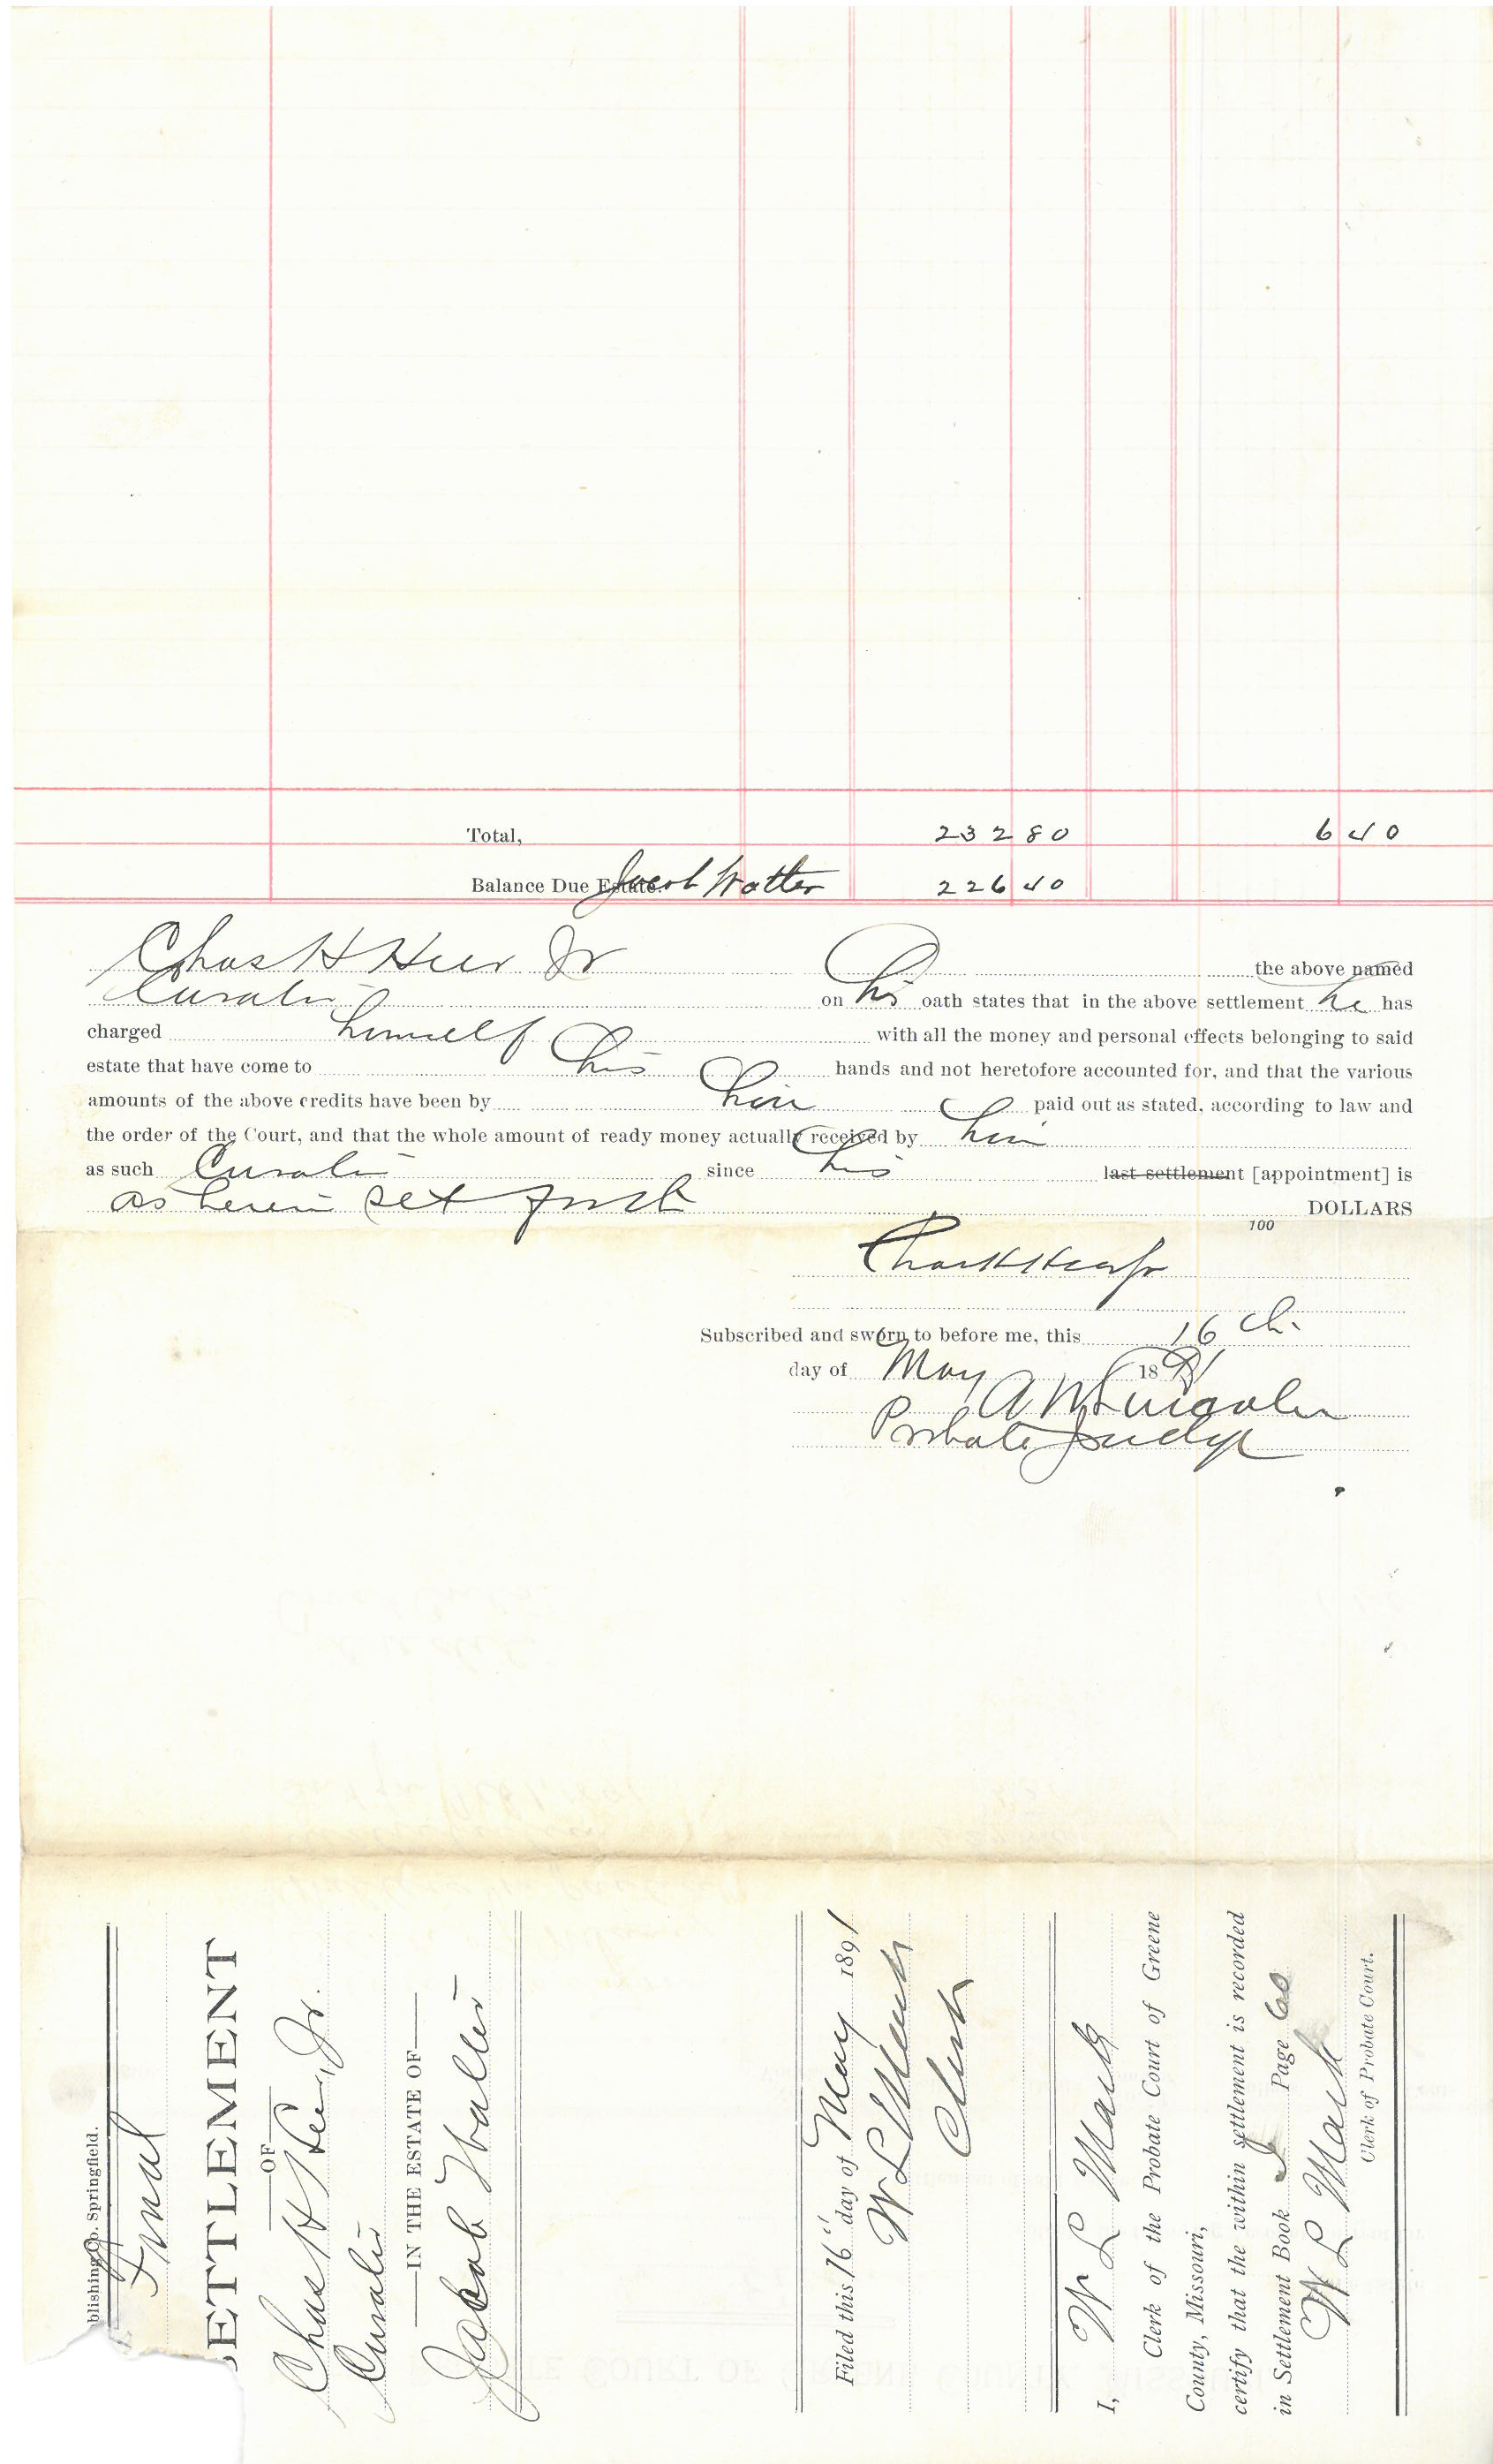 Total, 232 80 6 40
Balance Due Estate. Jacob Walter 226 40
Chas H Heer Jr the above named
Curator on his oath states that in the above settlement he has
charged himself with all the money and personal effects belonging to said
estate that have come to his hands and not heretofore accounted for, and that the various
amounts of the above credits have been by him paid out as stated, according to law and
the order of the Court, and that the whole amount of ready money actually received by him
as such Curator since his last settlement [appointment] is
as herein set forth DOLLARS
100
Chas H Heer Jr
Subscribed and sworn to before me, this 16th
day of May 1891
Probate Judge
blishing Co. Springfield.
Final
SETTLEMENT
OF
Chas H Heer, Jr.
Curator
IN THE ESTATE OF
Jacob Walter
Filed this 16" day of May 1891
W L Mack
Clerk
I, W L Mack
Clerk of the Probate Court of Greene
County, Missouri,
certify that the within settlement is recorded
in Settlement Book Page 60
W L Mack
Clerk of Probate Court.